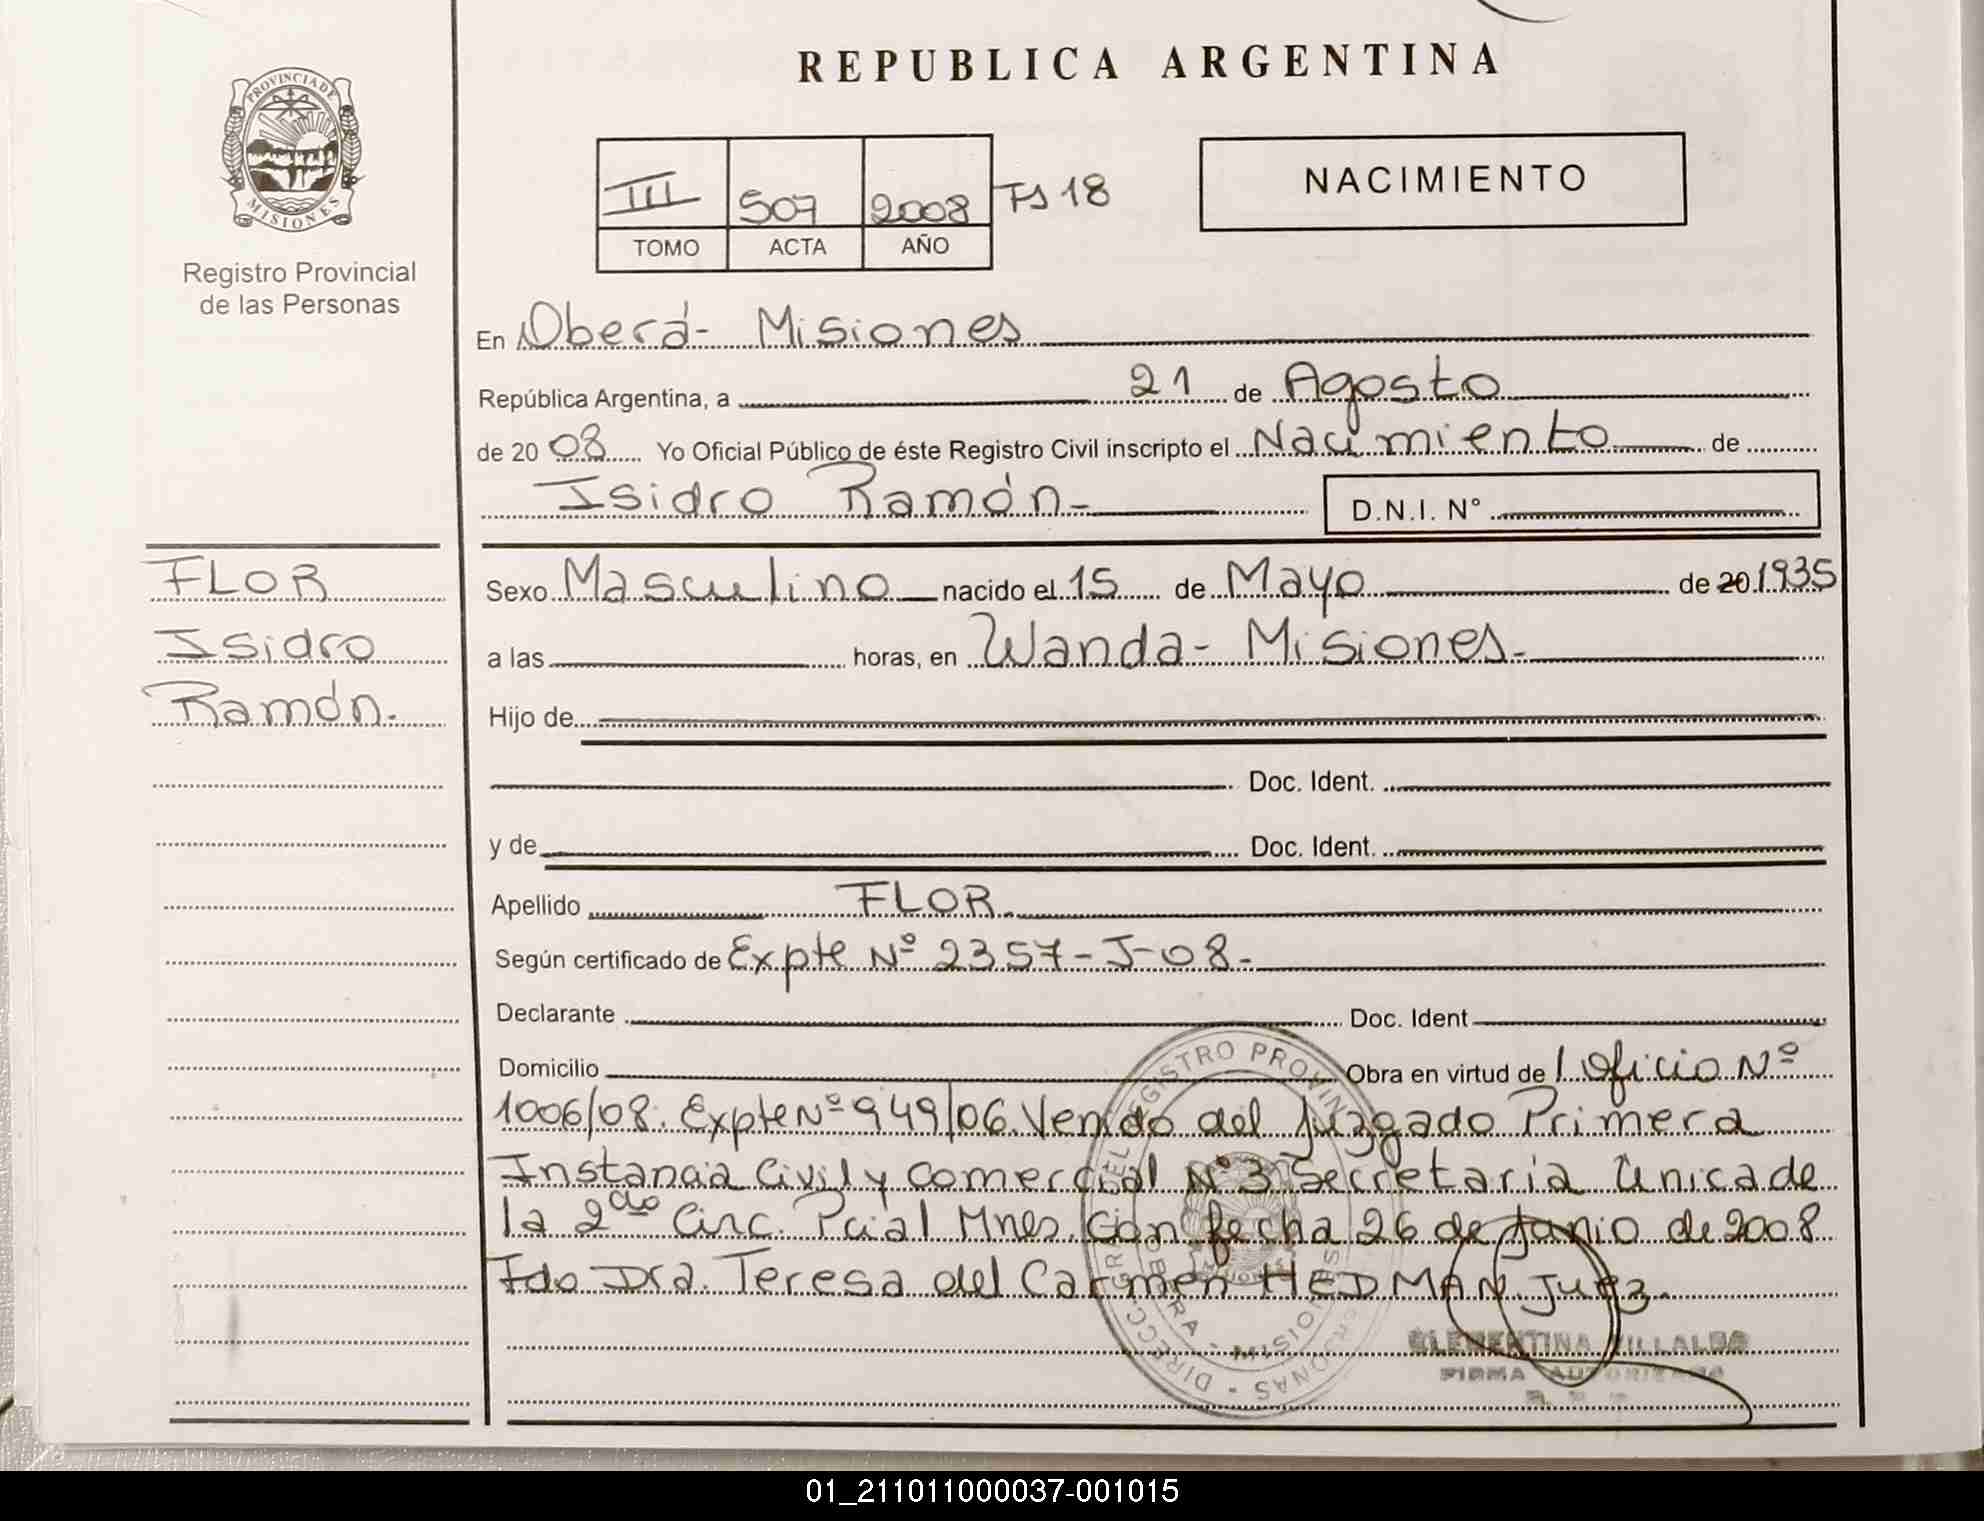 REPUBLICA ARGENTINA
PROVINCIA DE MISIONES
Registro Provincial
de las Personas
III 507 2008 Fs 18
TOMO ACTA AÑO
NACIMIENTO
En Oberá- Misiones
República Argentina, a 21 de Agosto
de 20 08 Yo Oficial Público de éste Registro Civil inscripto el Nacimiento de
Isidro Ramón- D.N.I. N°
FLOR
Isidro
Ramón.
Sexo Masculino nacido el 15 de Mayo de 20 1935
a las horas, en Wanda- Misiones-
Hijo de
Doc. Ident.
y de Doc. Ident.
Apellido FLOR.
Según certificado de Expte Nº 2357-J-08-
Declarante Doc. Ident
Domicilio Obra en virtud de Oficio Nº
1006/08. Expte Nº 949/06. Venido del Juzgado Primera
Instancia Civil y Comercial Nº3 Secretaria Unica de
la 2da Circ. Pcial Mnes. Con fecha 26 de Junio de 2008
Fdo Dra. Teresa del Carmen HEDMAN Juez.
CLEMENTINA VILLALBO
FIRMA AUTORIZADA
01_211011000037-001015